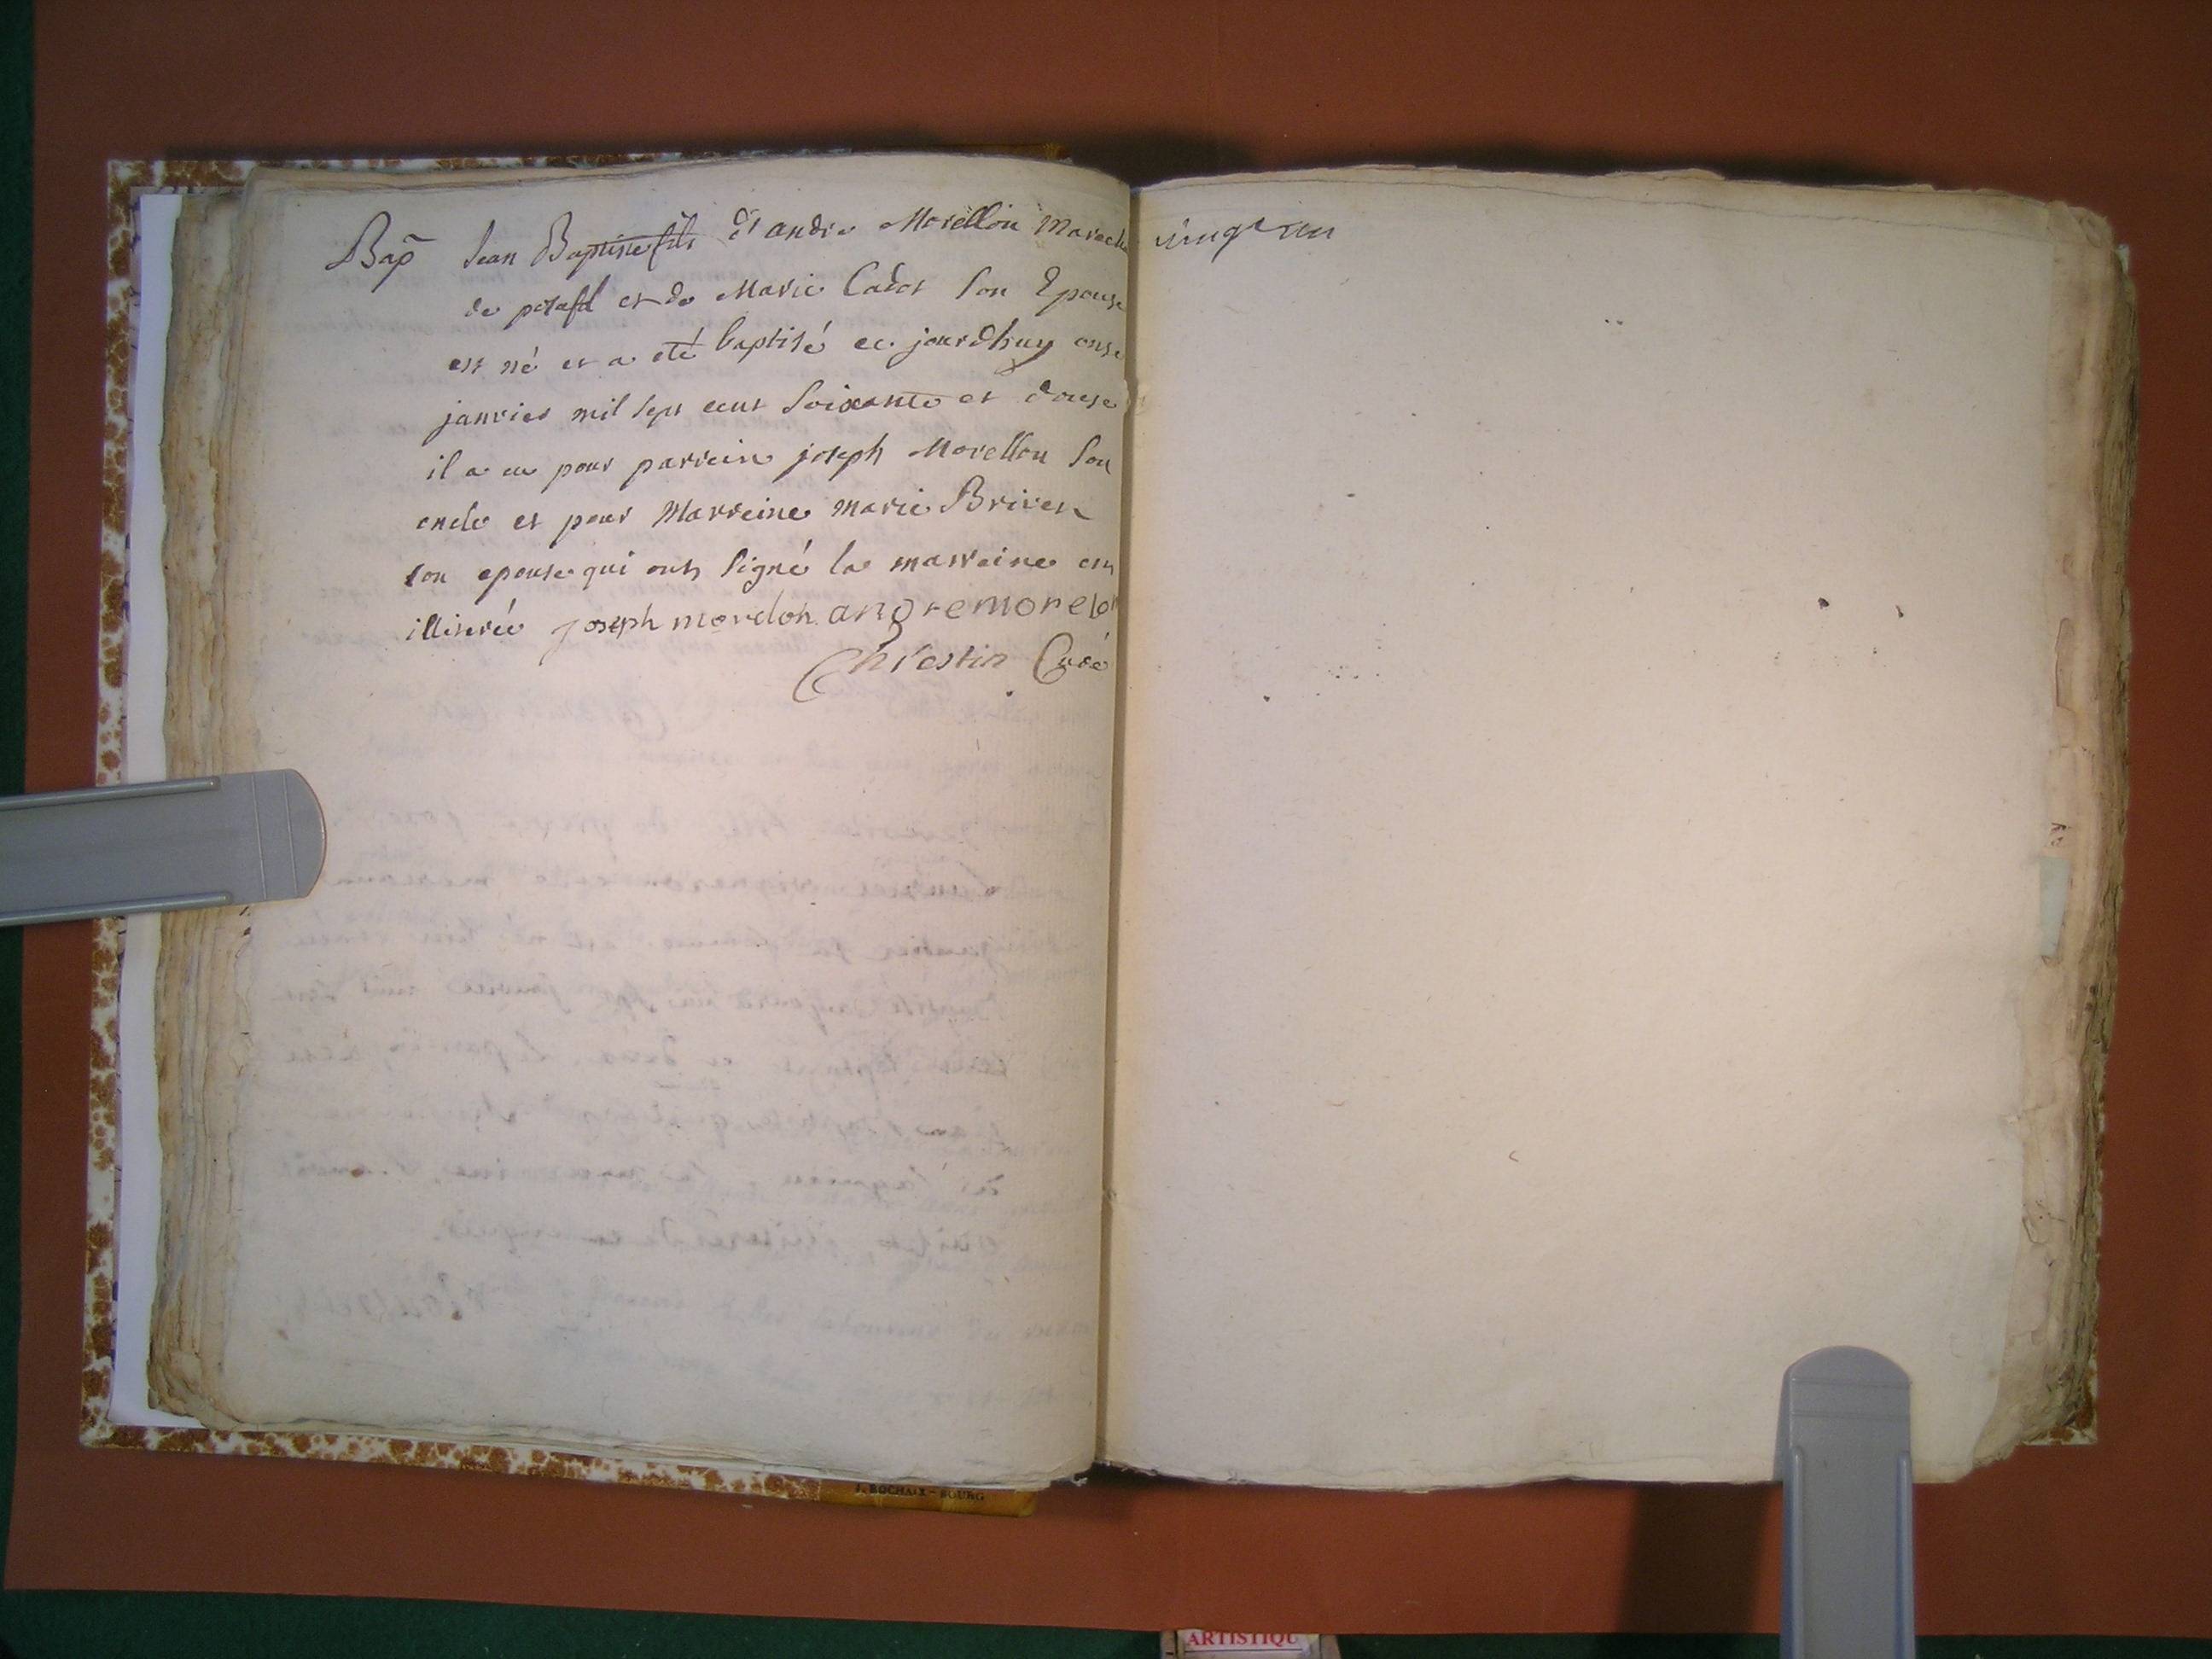 Bap̃ Jean Baptiste fils d'andre Morellon Marech
de et de Marie Cador son Epouse
est né et a eté baptisé ce jourdhuy onze
janvier mil sept cent soixante et douze
il a eu pour parrein joseph Morellon son
oncle et pour Marreine marie Brivet
son epouse qui ont signé la marreine
illiterée joseph morelon andremorelon
Chrestin Curé
vingt un
J. ROCHAIX - BOURG
ARTISTIQU